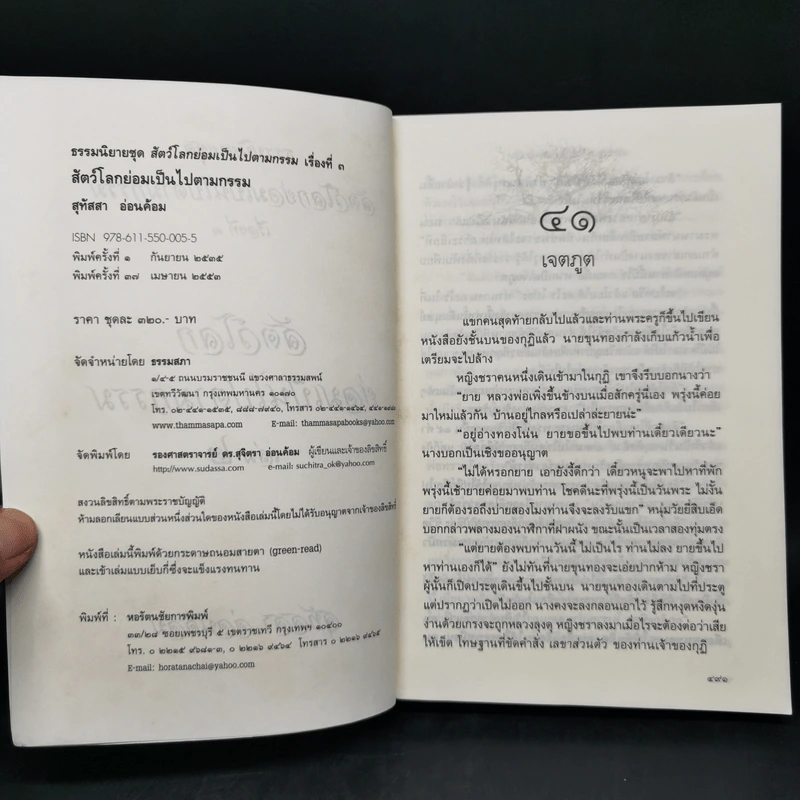 ธรรมนิยายชุด สัตว์โลกย่อมเป็นไปตามกรรม เรื่องที่ ๓
สัตว์โลกย่อมเป็นไปตามกรรม
สุทัสสา อ่อนค้อม
ISBN 978-611-550-005-5
พิมพ์ครั้งที่ ๑ กันยายน ๒๕๓๕
พิมพ์ครั้งที่ ๓๗ เมษายน ๒๕๕๓
ราคา ชุดละ ๓๒๐.- บาท
จัดจำหน่ายโดย ธรรมสภา
๑/๔-๕ ถนนบรมราชชนนี แขวงศาลาธรรมสพน์
เขตทวีวัฒนา กรุงเทพมหานคร ๑๐๑๗๐
โทร. ๐๒-๔๔๑-๑๕๓๕,
www.thammasapa.com E-mail: thammasapabooks@yahoo.com
จัดพิมพ์โดย รองศาสตราจารย์ ดร.สุจิตรา อ่อนค้อม ผู้เขียนและเจ้าของลิขสิทธิ์
http://www.sudassa.com e-mail: suchitra_ok@yahoo.com
สงวนลิขสิทธิ์ตามพระราชบัญญัติ
ห้ามลอกเลียนแบบส่วนหนึ่งส่วนใดของหนังสือเล่มนี้โดยไม่ได้รับอนุญาตจากเจ้าของลิขสิทธิ์
หนังสือเล่มนี้พิมพ์ด้วยกระดาษถนอมสายตา (green-read)
และเข้าเล่มแบบเย็บกี่ซึ่งจะแข็งแรงทนทาน
พิมพ์ที่ : หอรัตนชัยการพิมพ์
๓๓/๒๘ ซอยเพชรบุรี ๕ เขตราชเทวี กรุงเทพฯ ๑๐๔๐๐
โทร. ๐ ๒๒๑๕ ๙๖๘๑-๓, ๐ ๒๒๑๖ ๙๔๖๔ โทรสาร ๐ ๒๒๑๖ ๙๔๖๕
E-mail: horatanachai@yahoo.com
๔๑
เจตภูต
แขกคนสุดท้ายกลับไปแล้วและท่านพระครูก็ขึ้นไปเขียน
หนังสือยังชั้นบนของกุฏิแล้ว นายขุนทองกำลังเก็บแก้วน้ำเพื่อ
เตรียมจะไปล้าง
หญิงชราคนหนึ่งเดินเข้ามาในกุฏิ เขาจึงรีบบอกนางว่า
"ยาย หลวงพ่อเพิ่งขึ้นข้างบนเมื่อสักครู่นี่เอง พรุ่งนี้ค่อย
มาใหม่แล้วกัน บ้านอยู่ไกลหรือเปล่าล่ะยายน่ะ"
"อยู่อ่างทองโน่น ยายขอขึ้นไปพบท่านเดี๋ยวเดียวนะ"
นางบอกเป็นเชิงขออนุญาต
"ไม่ได้หรอกยาย เอายังงี้ดีกว่า เดี๋ยวหนูจะพาไปหาที่พัก
พรุ่งนี้เช้ายายค่อยมาพบท่าน โชคดีนะที่พรุ่งนี้เป็นวันพระ ไม่งั้น
ยายก็ต้องรอถึงบ่ายสองโมงท่านถึงจะลงรับแขก" หนุ่มวัยยี่สิบเอ็ด
บอกกล่าวพลางมองนาฬิกาที่ฝาผนัง ขณะนั้นเป็นเวลาสองทุ่มตรง
"แต่ยายต้องพบท่านวันนี้ ไม่เป็นไร ท่านไม่ลง ยายขึ้นไป
หาท่านเองก็ได้" ยังไม่ทันที่นายขุนทองจะเอ่ยปากห้าม หญิงชรา
ผู้นั้นก็เปิดประตูเดินขึ้นไปชั้นบน นายขุนทองเดินตามไปที่ประตู
แต่ปรากฏว่าเปิดไม่ออก นางคงจะลงกลอนเอาไว้ รู้สึกหงุดหงิดงุ่น
ง่านด้วยเกรงจะถูกหลวงลุงดุ หญิงชราลงมาเมื่อไรจะต้องต่อว่าเสีย
ให้เข็ด โทษฐานที่ขัดคำสั่ง เลขาส่วนตัว ของท่านเจ้าของกุฏิ
๔๙๑